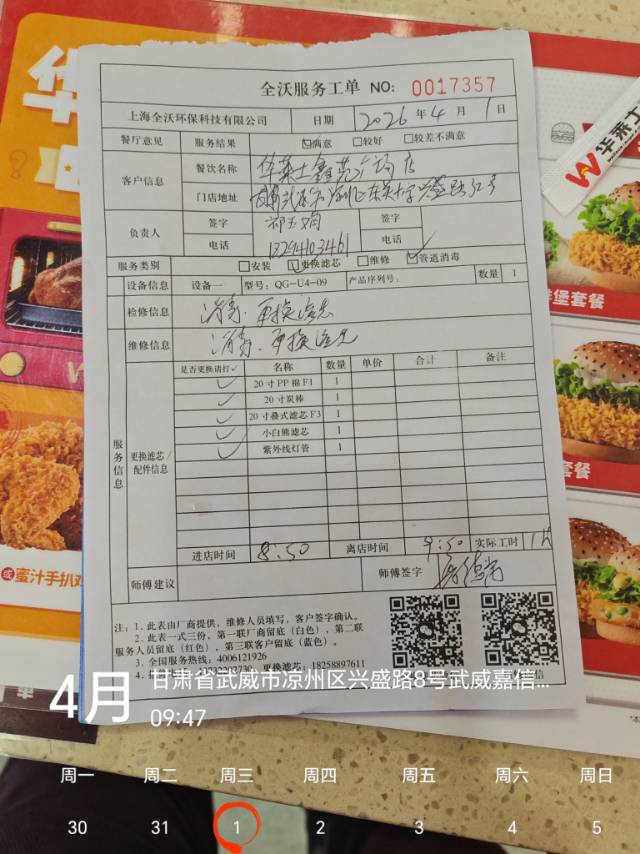 全沃服务工单 NO: 0017357
上海全沃环保科技有限公司 日期 2026 年 4 月 1 日
餐厅意见 服务结果 ☑满意 □较好 □较差不满意
客户信息 餐饮名称 华莱士鑫苑广场店
门店地址
负责人 签字 签字
电话 13294103461 电话
服务类别 □安装 ☑更换滤芯 □维修 ☑管道消毒
设备信息 设备一 型号: QG-U4-09 产品序列号: 数量 1
检修信息 消毒.更换滤芯
维修信息 消毒.更换滤芯
服务信息 更换滤芯/配件信息
是否更换请打✓ 名称 数量 单价 合计 备注
✓ 20寸PP棉F1 1
✓ 20寸炭棒 1
✓ 20寸叠式滤芯F3 1
✓ 小白熊滤芯 1
✓ 紫外线灯管 1
进店时间 8:50 离店时间 9:50 实际工时 1
师傅建议 师傅签字
注: 1. 此表由厂商提供, 维修人员填写, 客户签字确认。
2. 此表一式三份, 第一联厂商留底(白色), 第二联
服务人员留底(红色), 第三联客户留底(蓝色)。
3. 全国服务热线: 4006121926
更换滤芯: 18258897611
4月 甘肃省武威市凉州区兴盛路8号武威嘉信...
09:47
周一 周二 周三 周四 周五 周六 周日
30 31 1 2 3 4 5
华莱士
堡套餐
套餐
或蜜汁手扒鸡